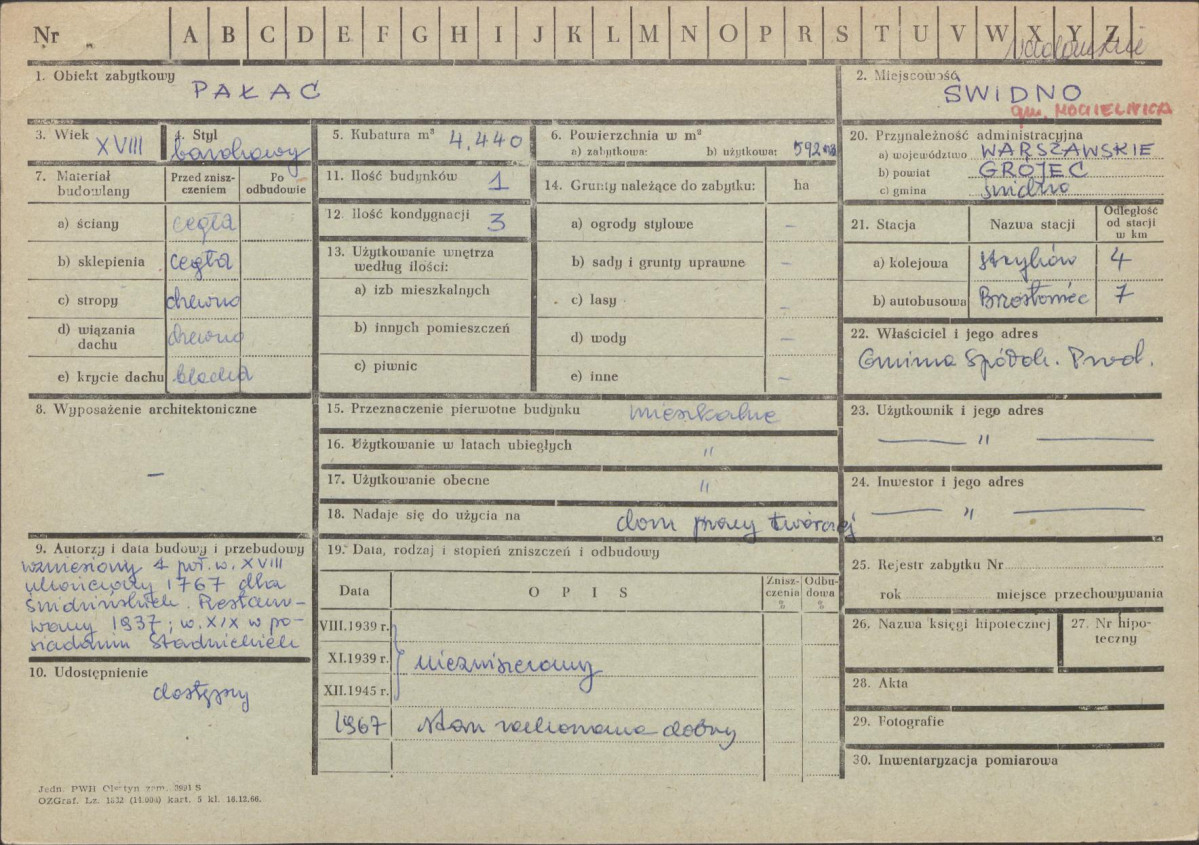 Nr A B C D E F G H I J K L M N O P R S T U V W X Y Z
1. Obiekt zabytkowy
PAŁAC
2. Miejscowość
ŚWIDNO
gm. MOGIELNICA
3. Wiek XVIII
4. Styl
barokowy
5. Kubatura m³ 4.440
6. Powierzchnia w m²
a) zabytkowa: b) użytkowa: 592
7. Materiał budowlany
Przed zniszczeniem
Po odbudowie
a) ściany cegła
b) sklepienia cegła
c) stropy drewno
d) wiązania dachu drewno
e) krycie dachu blacha
8. Wyposażenie architektoniczne
—
9. Autorzy i data budowy i przebudowy
wzniesiony 4 poł. w. XVIII
ukończony 1767 dla
Świdzińskich. Restauro-
wany 1937; w. XIX w po-
siadaniu Stadnickich
10. Udostępnienie
dostępny
11. Ilość budynków 1
12. Ilość kondygnacji 3
13. Użytkowanie wnętrza
według ilości:
a) izb mieszkalnych
b) innych pomieszczeń
c) piwnic
14. Grunty należące do zabytku: ha
a) ogrody stylowe –
b) sady i grunty uprawne –
c) lasy –
d) wody –
e) inne –
15. Przeznaczenie pierwotne budynku mieszkalne
16. Użytkowanie w latach ubiegłych "
17. Użytkowanie obecne "
18. Nadaje się do użycia na dom pracy twórczej
19. Data, rodzaj i stopień zniszczeń i odbudowy
Data
O P I S
Zniszczenia %
Odbudowa %
VIII.1939 r.
XI.1939 r. niezniszczony
XII.1945 r.
1967 stan zachowania dobry
20. Przynależność administracyjna
a) województwo WARSZAWSKIE
b) powiat GRÓJEC
c) gmina Świdno
21. Stacja
Nazwa stacji
Odległość od stacji w km
a) kolejowa 4
b) autobusowa 7
22. Właściciel i jego adres
Gminna Spółdz. Prod.
23. Użytkownik i jego adres
— " —
24. Inwestor i jego adres
— " —
25. Rejestr zabytku Nr
rok miejsce przechowywania
26. Nazwa księgi hipotecznej
27. Nr hipoteczny
28. Akta
29. Fotografie
30. Inwentaryzacja pomiarowa
Jedn. PWH Olsztyn zam. 2991 S
OZGraf. Lz. 1532 (14.000) kart. 5 kl. 16.12.66.